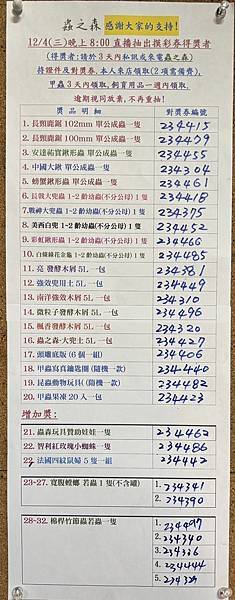 蟲之森 感謝大家的支持!
12/4(三)晚上 8:00 直播抽出摸彩券得獎者
(得獎者:請於 3 天內私訊或來電蟲之森)
持證件及對獎券,本人來店領取(2 項需備齊),
甲蟲 3 天內領取,飼育用品一週內領取,
逾期視同放棄,不再重抽!
獎 品 明 細 對獎券編號
1. 長頸鹿鋸 102mm 單公成蟲一隻 234415
2. 長頸鹿鋸 100mm 單公成蟲一隻 234499
3. 安達祐實鍬形蟲 單公成蟲一隻 234455
4. 中國大鍬 單公成蟲一隻 234304
5. 螃蟹鍬形蟲 單公成蟲一隻 234461
6. 長戟大兜蟲 1~2 齡幼蟲(不分公母) 1 隻 234418
7. 戰神大兜蟲 1~2 齡幼蟲(不分公母) 1 隻 234375
8. 美西白兜 1~2 齡幼蟲(不分公母) 1 隻 234452
9. 彩虹鍬形蟲 1~2 齡幼蟲(不分公母) 1 隻 234466
10. 白條綠花金龜 1~2 齡幼蟲(不分公母) 1 隻 234485
11. 亮 發酵木屑 5L 一包 234381
12. 強效兜用土 5L 一包 234449
13. 南洋強效木屑 5L 一包 234310
14. 微粒子發酵木屑 5L 一包 234496
15. 楓香發酵木屑 5L 一包 234320
16. 蟲之森-大兜土 5L 一包 234427
17. 頭疆底版 (6 個一組) 234406
18. 甲蟲寫真鑰匙圈 (隨機一款) 234440
19. 昆蟲動物玩具 (隨機一款) 234482
20. 甲蟲果凍 20 入一包 234423
增加獎:
21. 蟲森玩具贊助娃娃一隻 234462
22. 智利紅玫瑰小蜘蛛一隻 234486
22. 法國四紋鼠婦 5 隻一組 234442
23-27. 寬腹螳螂 若蟲 1 隻(不含罐) 1. 234341
2. 234390
28-32. 棉桿竹節蟲若蟲一隻 1. 234497
2. 234340
3. 234336
4. 234444
5. 234329